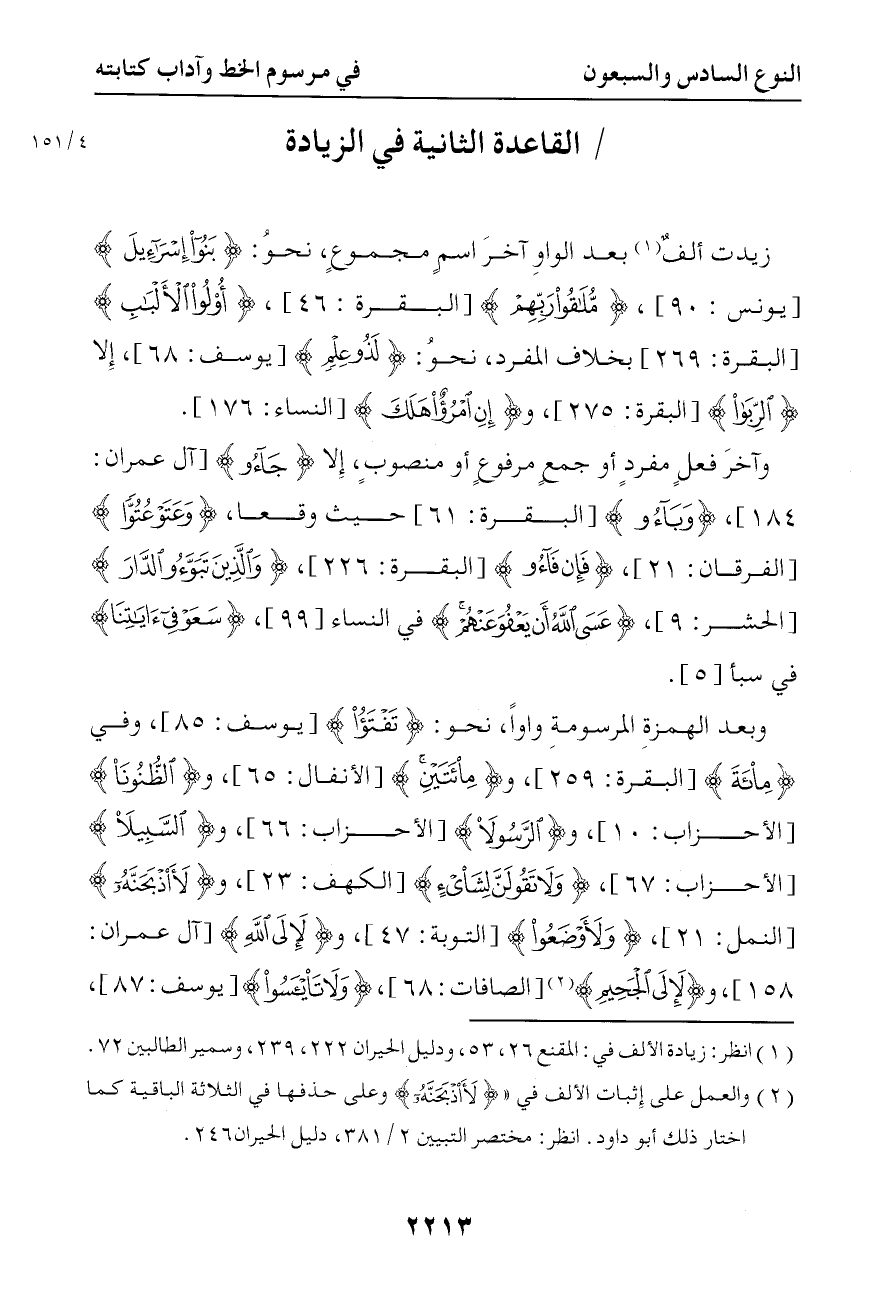 النوع السادس والسبعون في مرسوم الخط وآداب كتابته
/ القاعدة الثانية في الزيادة ٤/١٥١
زيدت ألفٌ(١) بعد الواوِ آخرَ اسمٍ مجموعٍ، نحوُ: ﴿ بَنُوٓاْ إِسۡرَٰٓءِيلَ ﴾
[يونس : ٩٠] ، ﴿ مُّلَٰقُواْ رَبِّهِمۡ ﴾ [البقرة : ٤٦] ، ﴿ أُوْلُواْ ٱلۡأَلۡبَٰبِ ﴾
[البقرة: ٢٦٩] بخلاف المفرد، نحوُ: ﴿ لَذُو عِلۡمٖ ﴾ [يوسف: ٦٨]، إلا
﴿ ٱلرِّبَوٰاْ ﴾ [البقرة: ٢٧٥]، و﴿ إِنِ ٱمۡرُؤٌاْ هَلَكَ ﴾ [النساء: ١٧٦].
وآخرَ فعلٍ مفردٍ أو جمعٍ مرفوعٍ أو منصوبٍ، إلا ﴿ جَآءُو ﴾ [آل عمران:
١٨٤]، ﴿وَبَآءُو ﴾ [البقرة: ٦١] حيث وقعا، ﴿ وَعَتَوۡ عُتُوّٗا ﴾
[الفرقان: ٢١]، ﴿ فَإِن فَآءُو ﴾ [البقرة: ٢٢٦]، ﴿ وَالَّذِينَ تَبَوَّءُو الدَّارَ ﴾
[الحشر: ٩]، ﴿ عَسَى ٱللَّهُ أَن يَعۡفُوَ عَنۡهُمۡۚ ﴾ في النساء [٩٩]، ﴿ سَعَوۡ فِيٓ ءَايَٰتِنَا ﴾
في سبأ [٥].
وبعد الهمزة المرسومة واواً، نحو: ﴿ تَفۡتَؤُاْ ﴾ [يوسف: ٨٥]، وفي
﴿ مِاْئَةَ ﴾ [البقرة: ٢٥٩]، و﴿ مِاْئَتَيۡنِۚ ﴾ [الأنفال: ٦٥]، و﴿ ٱلظُّنُونَا۠ ﴾
[الأحزاب: ١٠]، و﴿ٱلرَّسُولَا۠ ﴾ [الأحزاب: ٦٦]، و﴿ ٱلسَّبِيلَا۠ ﴾
[الأحزاب: ٦٧]، ﴿ وَلَا تَقُولَنَّ لِشَاْيۡءٍ ﴾ [الكهف: ٢٣]، و﴿ لَأَاْذۡبَحَنَّهُۥٓ ﴾
[النمل: ٢١]، ﴿ وَلَأَوۡضَعُواْ ﴾ [التوبة: ٤٧]، و﴿ لَإِلَى ٱللَّهِ ﴾ [آل عمران:
١٥٨]، و﴿لَإِلَى ٱلۡجَحِيمِ ﴾(٢) [الصافات: ٦٨]، ﴿ وَلَا تَاْيۡـَٔسُواْ ﴾ [يوسف: ٨٧]،
(١) انظر: زيادة الألف في: المقنع ٢٦، ٥٣، ودليل الحيران ٢٢٢، ٢٣٩، وسمير الطالبين ٧٢.
(٢) والعمل على إثبات الألف في «﴿ لَأَاْذۡبَحَنَّهُۥٓ ﴾ وعلى حذفها في الثلاثة الباقية كما
اختار ذلك أبو داود. انظر: مختصر التبيين ٢/ ٣٨١، دليل الحيران ٢٤٦.
٢٢١٣